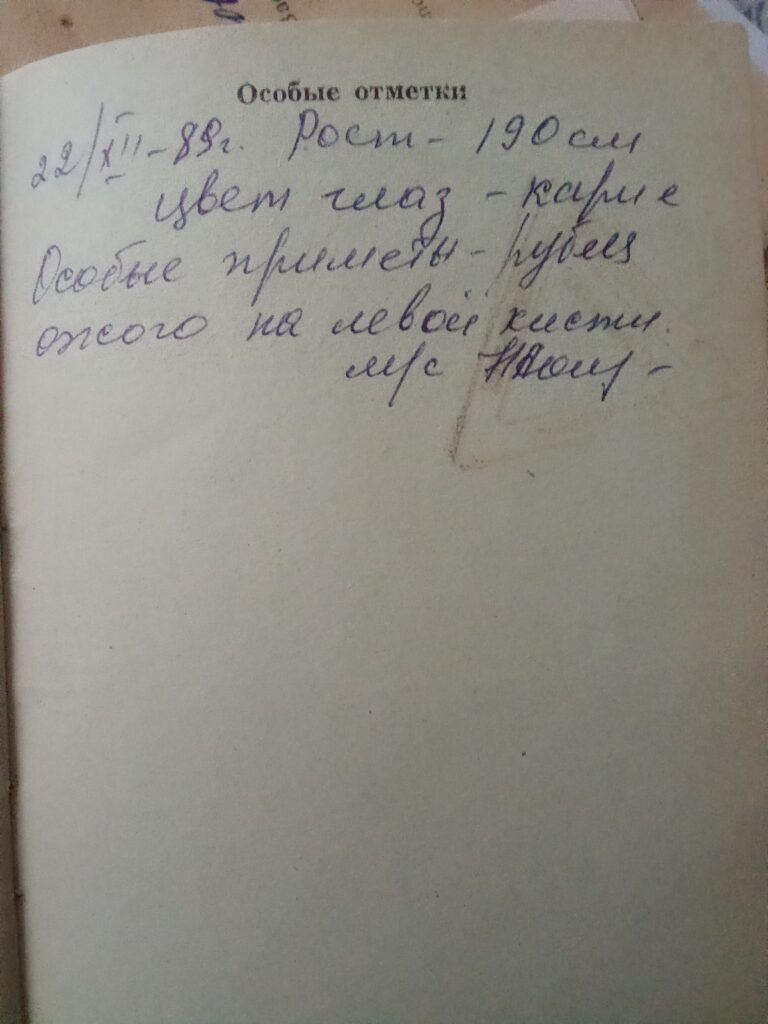 Особые отметки
22/XII-89г. Рост - 190 см
цвет глаз - карие
Особые приметы - рубец
ожого на левой кисти.
м/с